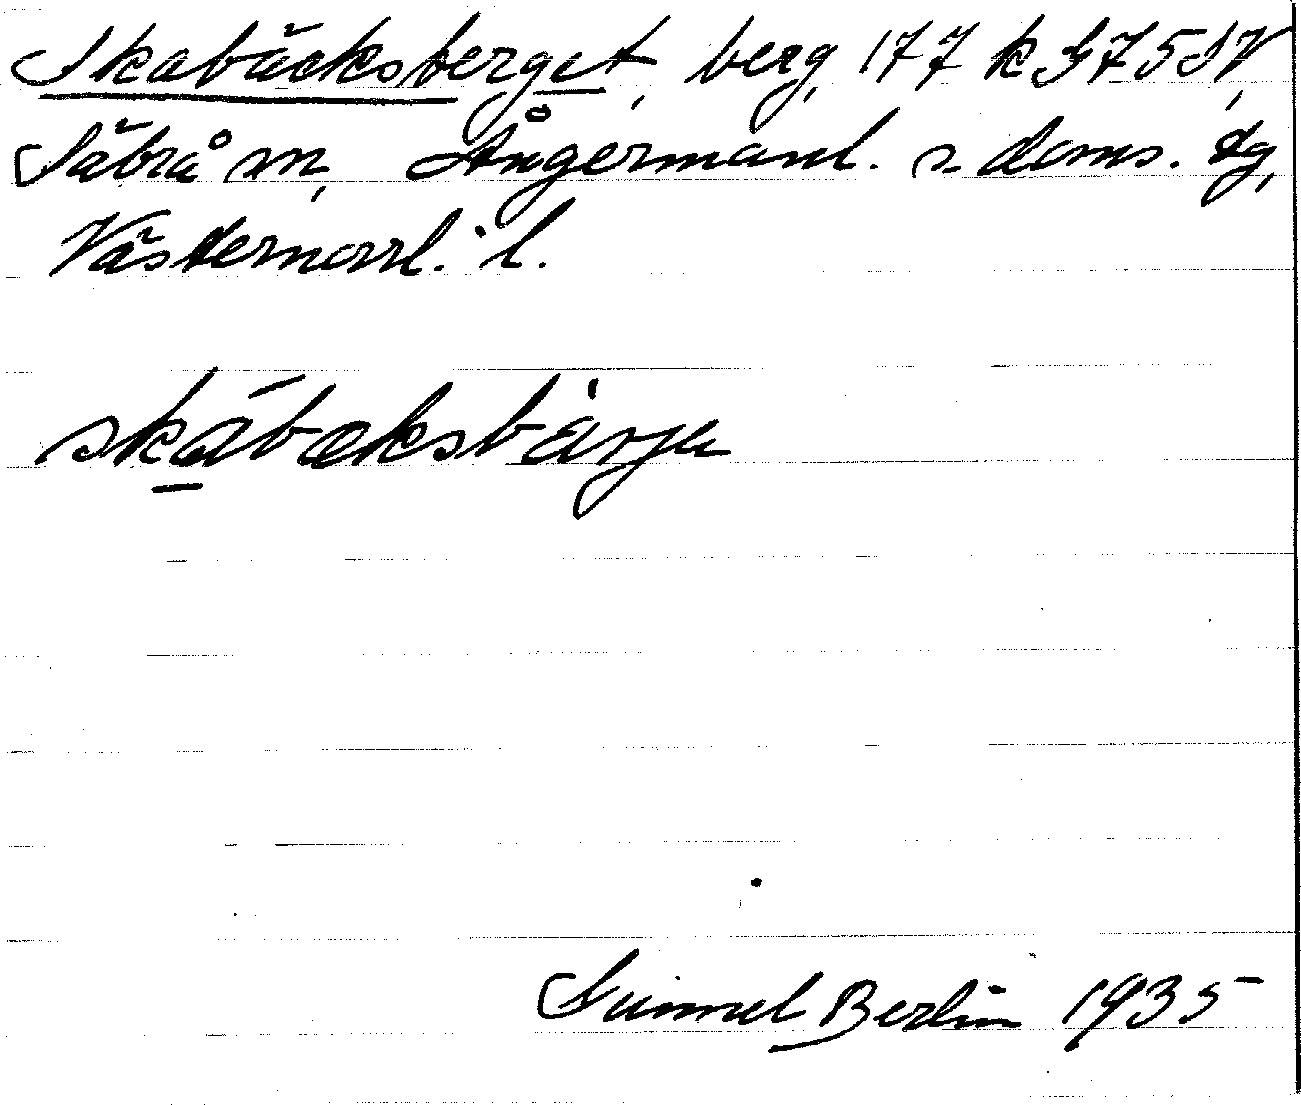 Skabäcksberget, berg, 177 k G 75 SV,
Säbrå sn, Ångermanl. s. doms. tg,
Västernorrl. l.
skábæksbärju
Berlin 1935